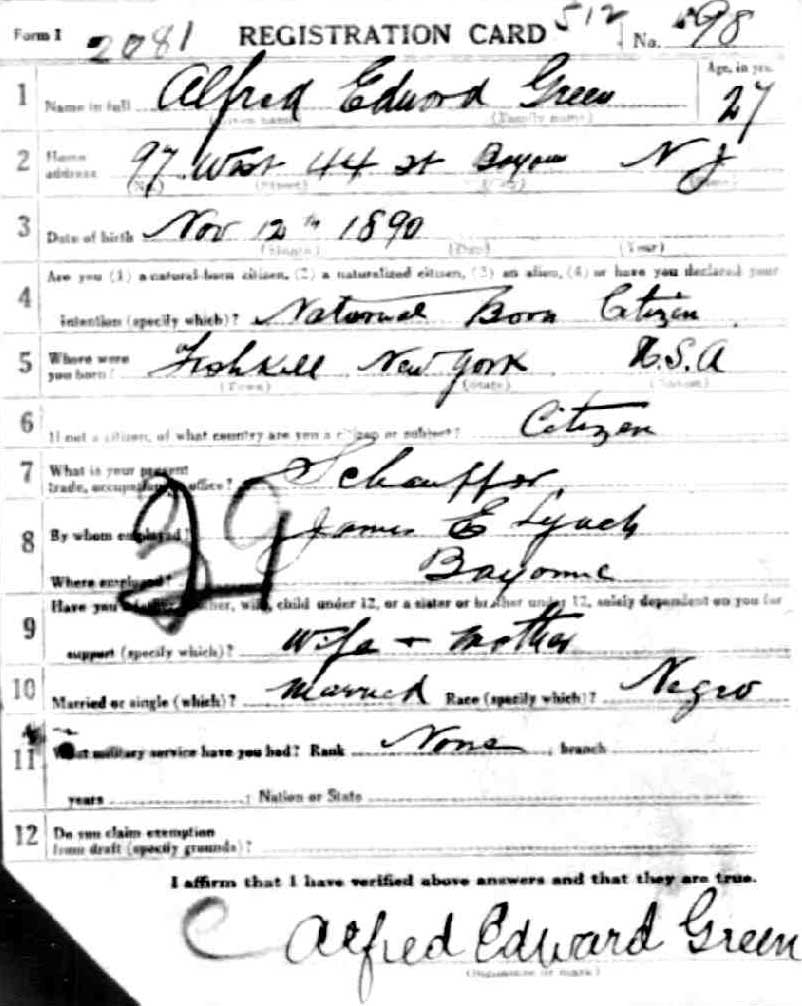 Form 1 2081 REGISTRATION CARD 512 No. 98
1 Name in full Alfred Edward Green Age, in yrs. 27
(Given name) (Family name)
2 Home address 97 West 44 st Bayonne N J
(No.) (Street) (City) (State)
3 Date of birth Nov 12th 1890
(Month) (Day) (Year)
4 Are you (1) a natural-born citizen, (2) a naturalized citizen, (3) an alien, (4) or have you declared your
intention (specify which)? Natural Born Citizen
5 Where were you born? Fishkill New York U.S.A
(Town) (State) (Nation)
6 If not a citizen, of what country are you a citizen or subject? Citizen
7 What is your present trade, occupation, or office? Schauffor
8 By whom employed? James E Lynch
Where employed? Bayonne
29
9 Have you a father, mother, wife, child under 12, or a sister or brother under 12, solely dependent on you for
support (specify which)? Wife + Mother
10 Married or single (which)? Married Race (specify which)? Negro
11 What military service have you had? Rank None, branch
years ; Nation or State
12 Do you claim exemption
from draft (specify grounds)?
I affirm that I have verified above answers and that they are true.
C Alfred Edward Green
(Signature or mark)